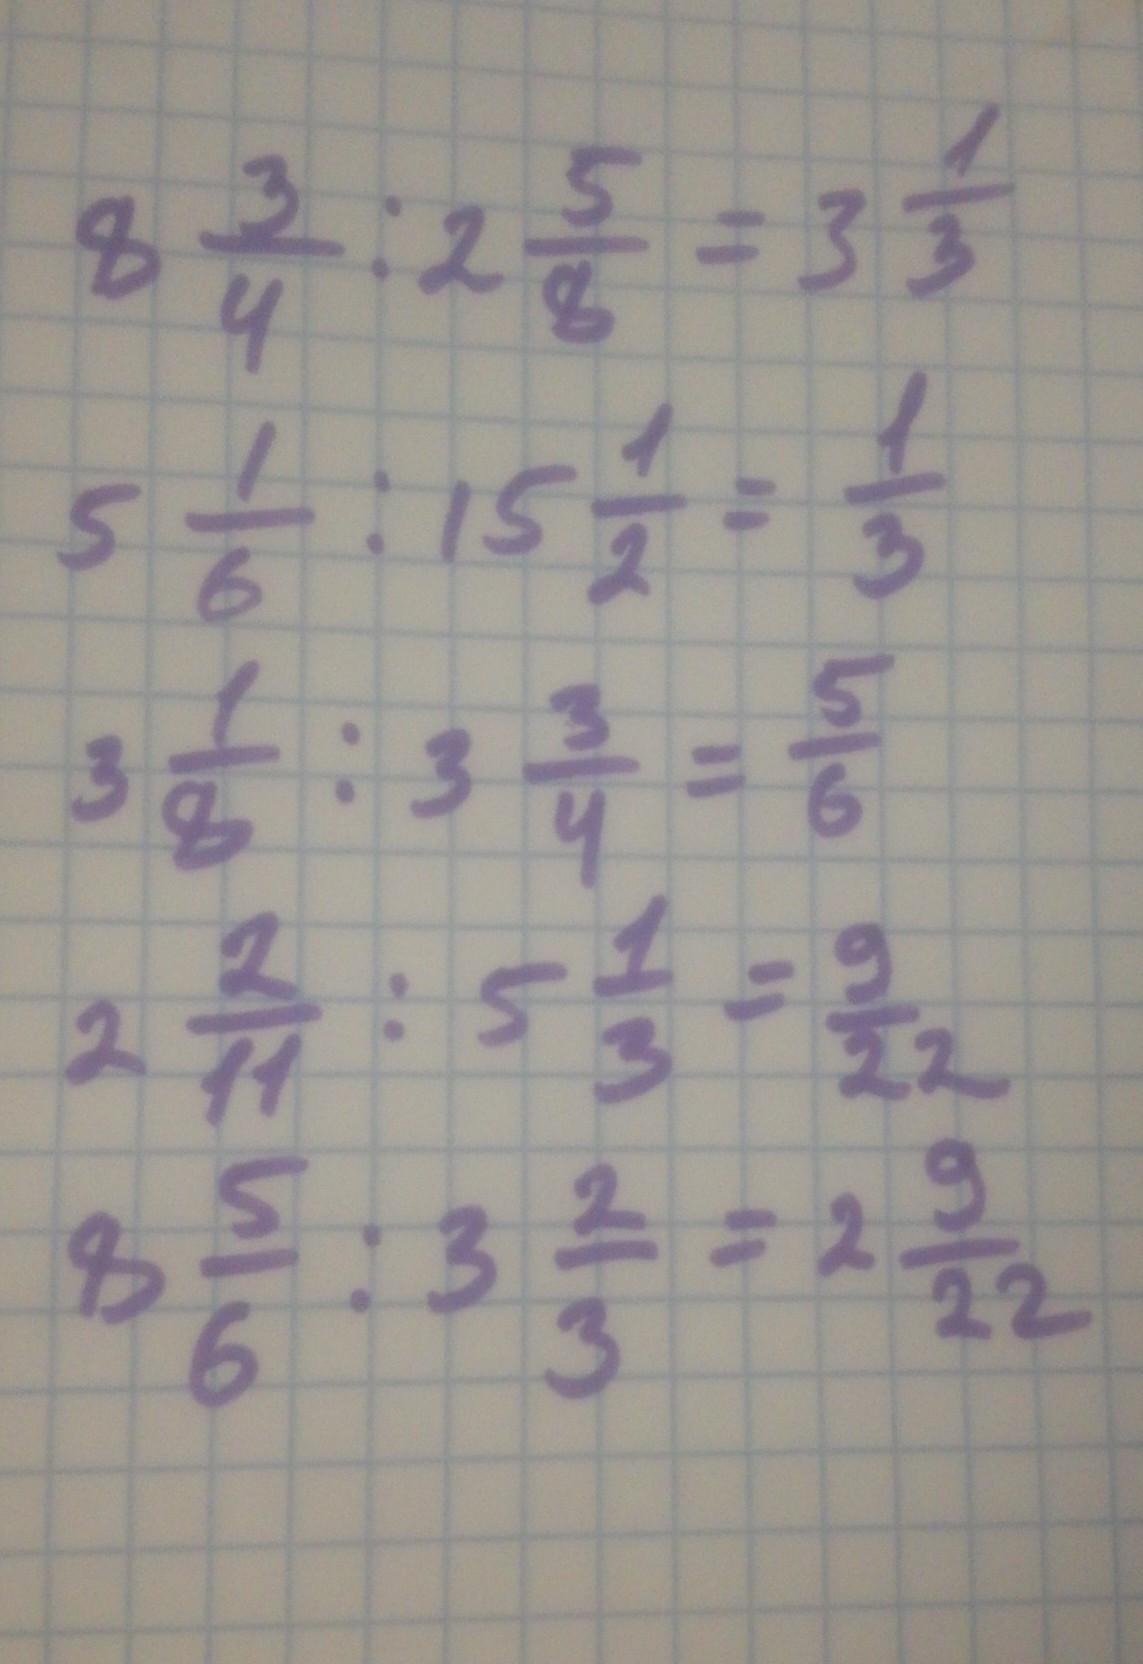 8 3/4 : 2 5/8 = 3 1/3
5 1/6 : 15 1/2 = 1/3
3 1/8 : 3 3/4 = 5/6
2 2/11 : 5 1/3 = 9/22
8 5/6 : 3 2/3 = 2 9/22